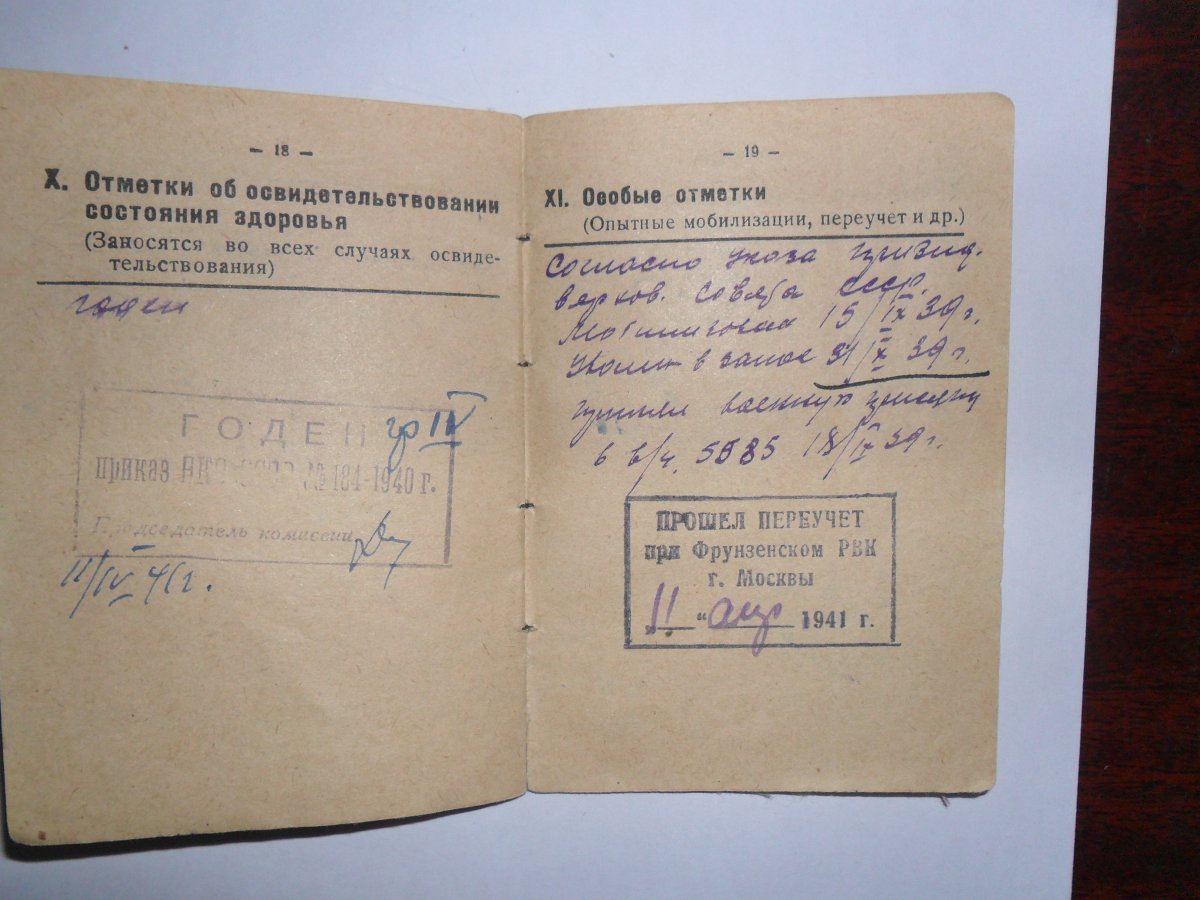 — 18 —
X. Отметки об освидетельствовании
состояния здоровья
(Заносятся во всех случаях освиде-
тельствования)
годен
ГОДЕН гр IV
приказ НКО СССР № 184-1940 г.
Председатель комиссии
11/IV 41 г.
— 19 —
XI. Особые отметки
(Опытные мобилизации, переучет и др.)
Согласно указа Презид.
верхов. Совета СССР.
15/IX 39 г.
в запас 31/X 39 г.
принял военную присягу
в в/ч. 5585 18/IX 39 г.
ПРОШЕЛ ПЕРЕУЧЕТ
при Фрунзенском РВК
г. Москвы
„11“ апр 1941 г.